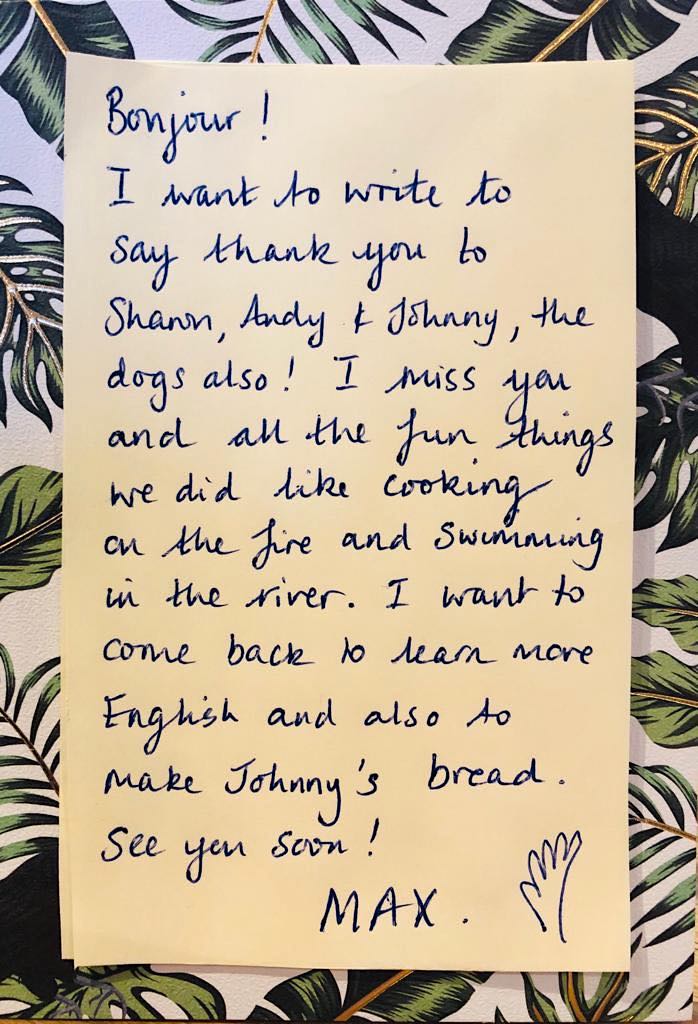 Bonjour !
I want to write to
say thank you to
Sharon, Andy & Johnny, the
dogs also! I miss you
and all the fun things
we did like cooking
on the fire and swimming
in the river. I want to
come back to learn more
English and also to
make Johnny's bread.
See you soon!
MAX.